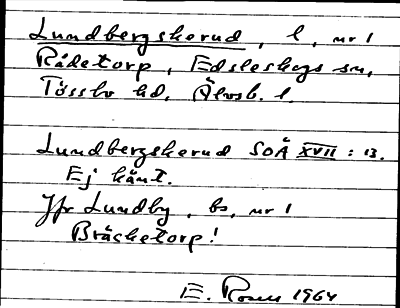 Lundbergskerud, l, nr 1
Rådetorp, Edsleskogs sn,
Tössbo hd, Älvsb. l.
Lundbergskerud SOÄ XVII : 13.
Ej känt.
Jfr Lundby, bs, nr 1
Bräcketorp!
E. Rosen 1964